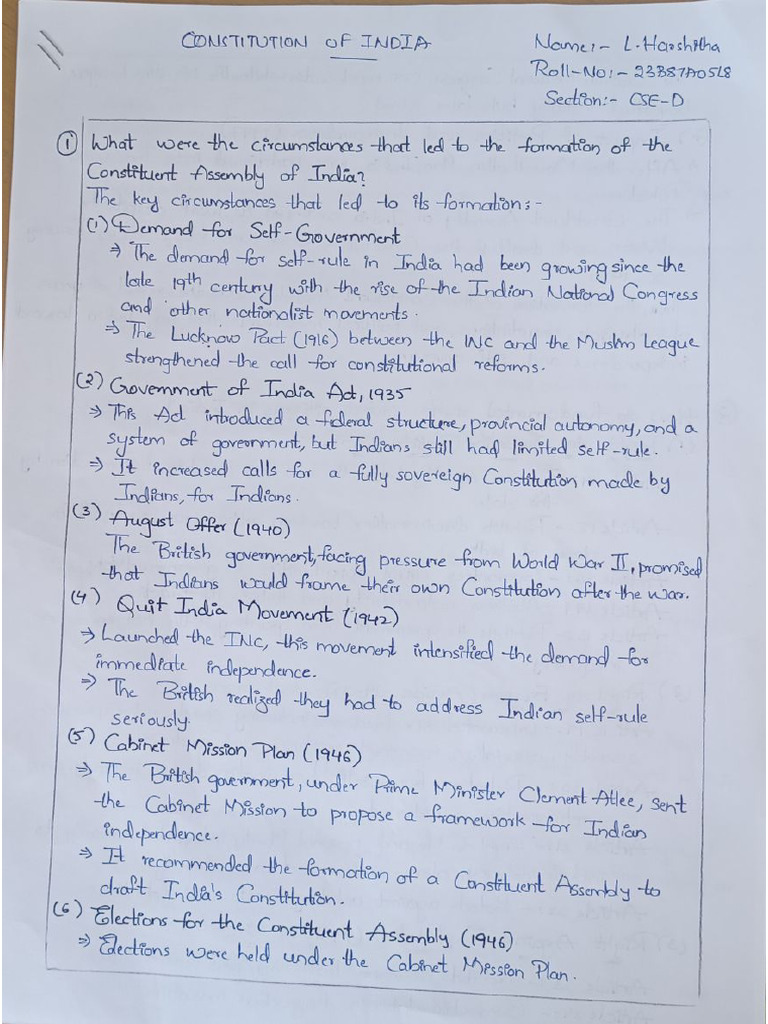 CONSTITUTION OF INDIA
Name:- L.Harshitha
Roll-No:- 23B87A05L8
Section:- CSE-D
① What were the circumstances that led to the formation of the
Constituent Assembly of India?
The key circumstances that led to its formation:-
(1) Demand for Self-Government
⇒ The demand for self-rule in India had been growing since the
late 19th century with the rise of the Indian National Congress
and other nationalist movements.
⇒ The Lucknow Pact (1916) between the INC and the Muslim League
strengthened the call for constitutional reforms.
(2) Government of India Act, 1935
⇒ This Act introduced a federal structure, provincial autonomy, and a
system of government, but Indians still had limited self-rule.
⇒ It increased calls for a fully sovereign Constitution made by
Indians, for Indians.
(3) August Offer (1940)
The British government, facing pressure from World War II, promised
that Indians would frame their own Constitution after the war.
(4) Quit India Movement (1942)
⇒ Launched the INC, this movement intensified the demand for
immediate independence.
⇒ The British realized they had to address Indian self-rule
seriously.
(5) Cabinet Mission Plan (1946)
⇒ The British government, under Prime Minister Clement Atlee, sent
the Cabinet Mission to propose a framework for Indian
independence.
⇒ It recommended the formation of a Constituent Assembly to
draft India's Constitution.
(6) Elections for the Constituent Assembly (1946)
⇒ Elections were held under the Cabinet Mission Plan.